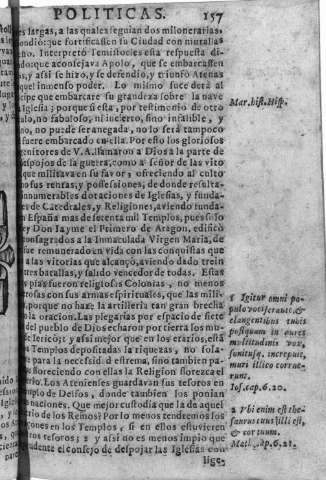 POLITICAS. 157
es largas, a las quales seguian dos milonerarias.
ondiò: que fortificassen su Ciudad con murallas
eño. Interpretò Temistocles esta respuesta di-
ndo: que aconsejava Apolo, que se embarcassen
es, y assi se hizo, y se defendio, y triunfò Atenas
quel inmenso poder. Lo mismo sucederá al
cipe que embarcare su grandeza sobre la nave
Iglesia; porque si esta, por testimonio de otro
ulo, no fabuloso, ni incierto, sino infalible, y
no, no puede ser anegada, no lo serà tampoco
fuere embarcado en ella. Por esto los gloriosos
genitores de V. A. llamaron a Dios a la parte de
despojos de la guerra, como a señor de las vito
que militava en su favor; ofreciendo al culto
o sus rentas, y possessiones, de donde resulta-
innumerables dotaciones de Iglesias, y funda-
es de Catedrales, y Religiones, aviendo funda-
España mas de setenta mil Templos, pues solo
ey Don Iayme el Primero de Aragon, edificò
consagrados a la Inmaculada Virgen Maria, de
fue remunerado en vida con las conquistas que
a las vitorias que alcançò, aviendo dado trein
tres batallas, y salido vencedor de todas. Estas
as pias fueron religiosas Colonias, no menos
erosas con sus armas espirituales, que las mili-
porque no haze la artilleria tan gran brecha
la oracion. Las plegarias por espacio de siete
del pueblo de Dios echaron por tierra los mu-
de Iericò: t y assi mejor que en los erarios, està
os Templos depositadas la riquezas, no sola-
para la necessidad estrema, sino tambien pa-
e floreciendo con ellas la Religion florezca el
erio. Los Atenienses guardavan sus tesoros en
mplo de Delfos, donde tambien los ponian
naciones. Que mejor custodia que la de aquel
rio de los Reinos? Por lo menos tendremos los
çones en los Templos, si en ellos estuvieren
ros tesoros; 2 y assi no es menos impio que
udente el consejo de despojar las Iglesias con
lige-
Mar. hist. Hisp.
1 Igitur omni po-
pulo vociferante, &
clangentibus tubis
postquam in aures
multitudinis vox,
sonitusq; increpuit,
muri illico corrue-
runt.
Ios. cap. 6. 20.
2 Vbi enim est the-
saurus tuus, illi est,
& cor tuum.
Math. cap. 6. 21.